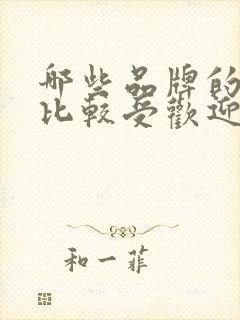 哪些品牌的
比較受歡迎
和一菲